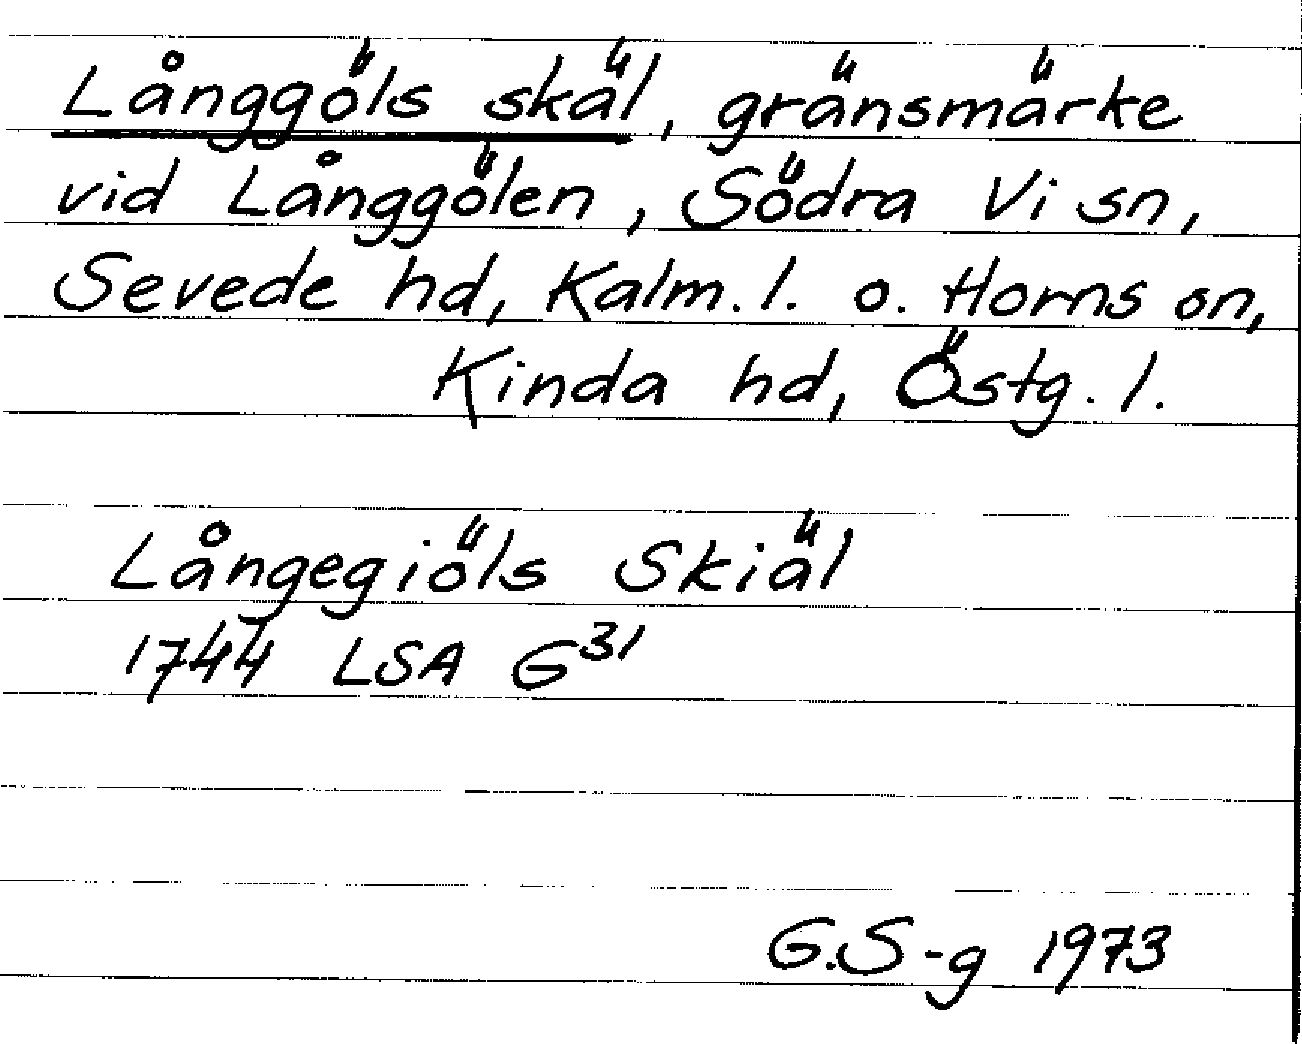 Långgöls skäl, gränsmärke
vid Långgölen, Södra Vi sn,
Sevede hd, Kalm. l. o. Horns sn,
Kinda hd, Östg. l.
Långegiöls Skiäl
1744 LSA G³¹
G.S-g 1973